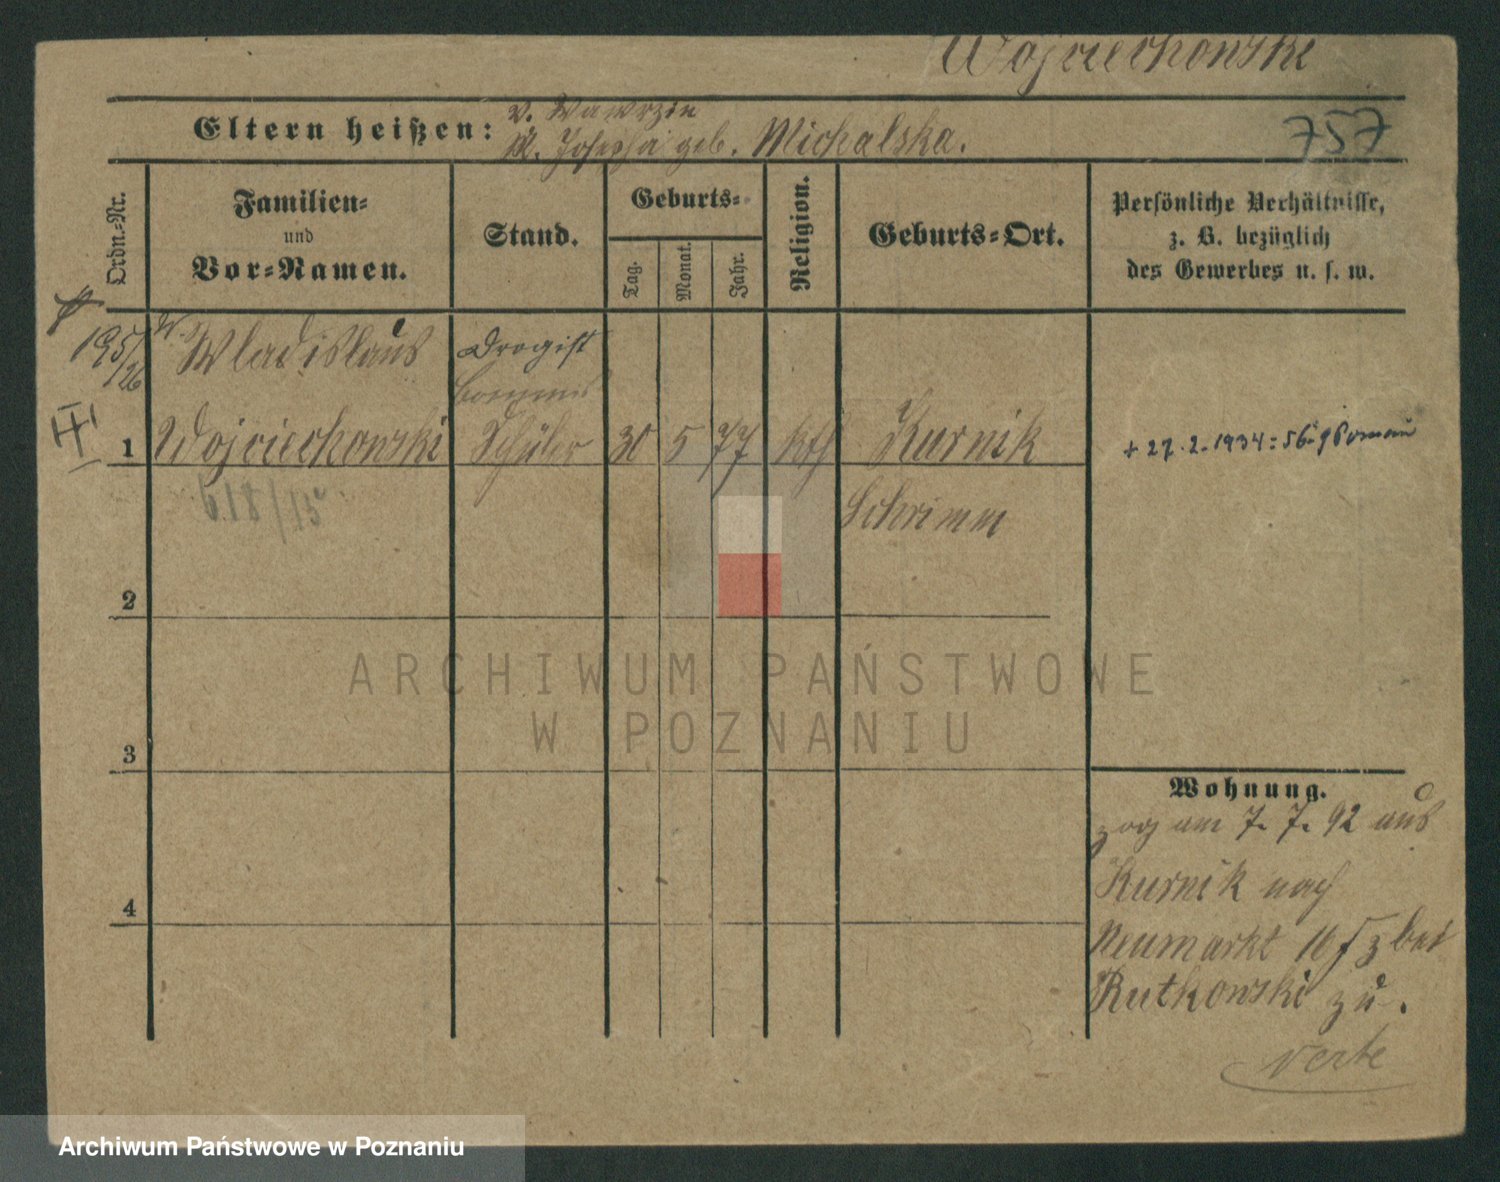 Wojciechowski
757
Eltern heißen: V. Wawrzin
M. Josepha geb. Michalska.
Ordn.-Nr.
Familien-
und
Vor-Namen.
Stand.
Geburts-
Tag.
Monat.
Jahr.
Religion.
Geburts-Ort.
Persönliche Verhältnisse,
z. B. bezüglich
des Gewerbes u. s. w.
195/26
Wladislaus
Drogist
1 Wojciechowski Schüler 30 5 77 kth Kurnik
+ 27.2.1934
618/15
Schrimm
2
3
4
Wohnung.
zog am 7. 7. 92 aus
Kurnik nach
Neumarkt 10 bei
Rutkowski zu.
verte
ARCHIWUM PAŃSTWOWE
W POZNANIU
Archiwum Państwowe w Poznaniu